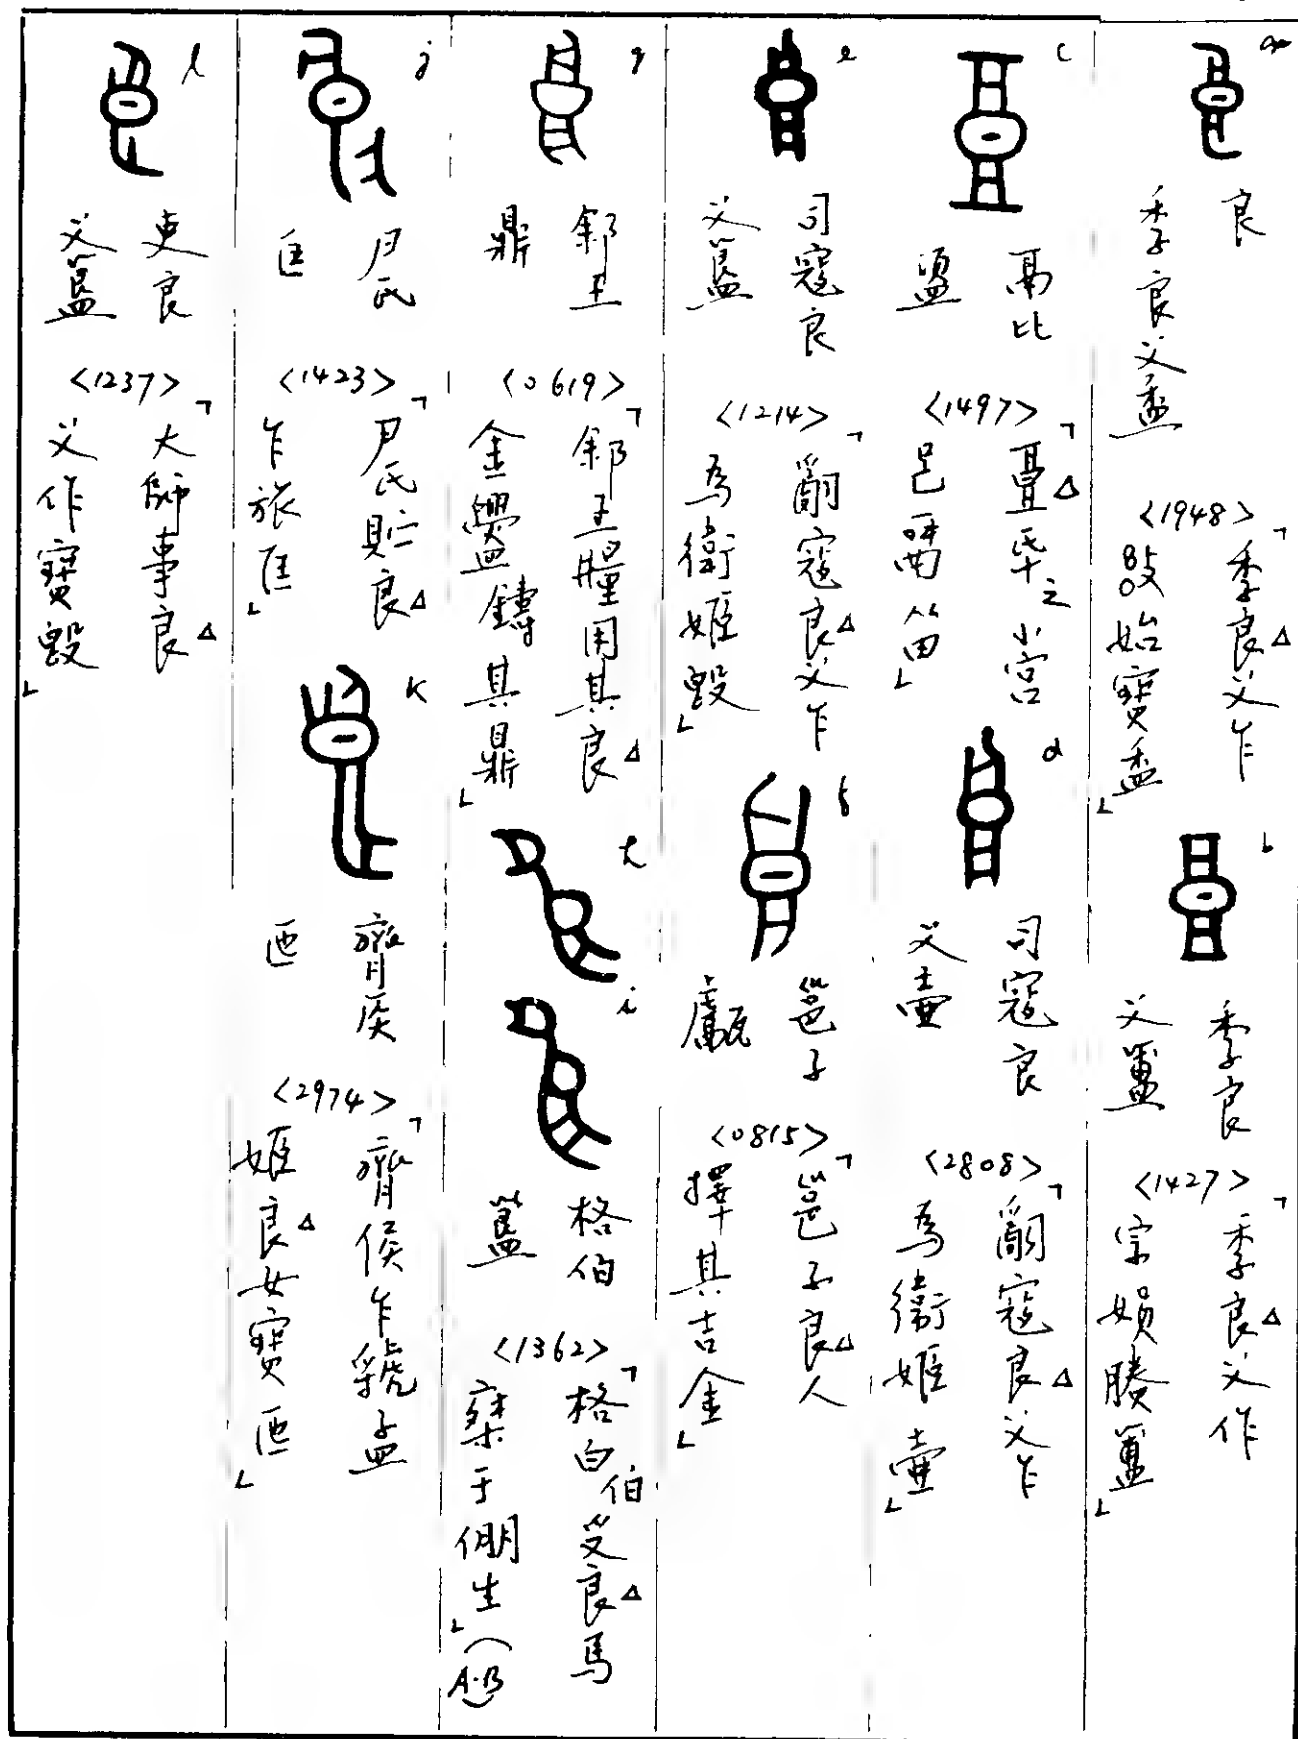 a
良
季良父盉
<1948>
「季良△父乍
始寶盉」
b
季良
父簠
<1427>
「季良△父作
宗娟媵簠」
c
鬲比
盨
<1497>
小宮
d
司寇良
父壷
<2808>
「𤔲寇良△父乍
為衛姬壷」
e
司寇良
父簋
<1214>
「𤔲寇良△父乍
為衛姬𣪘」
f
邕子
甗
<0815>
「邕子良△人
擇其吉金」
g
䣄王
鼎
<0619>
「䣄王糧用其良△
金鑄其鼎」
h
i
格伯
簋
<1362>
「格白伯受良△馬
于倗生」(A·B)
j
尹氏
匡
<1423>
「尹氏貯良△
乍旅匡」
k
齊侯
匜
<2974>
「齊侯乍虢孟
姬良△女寶匜」
l
吏良
父簋
<1237>
「大師事良△
父作寶𣪘」